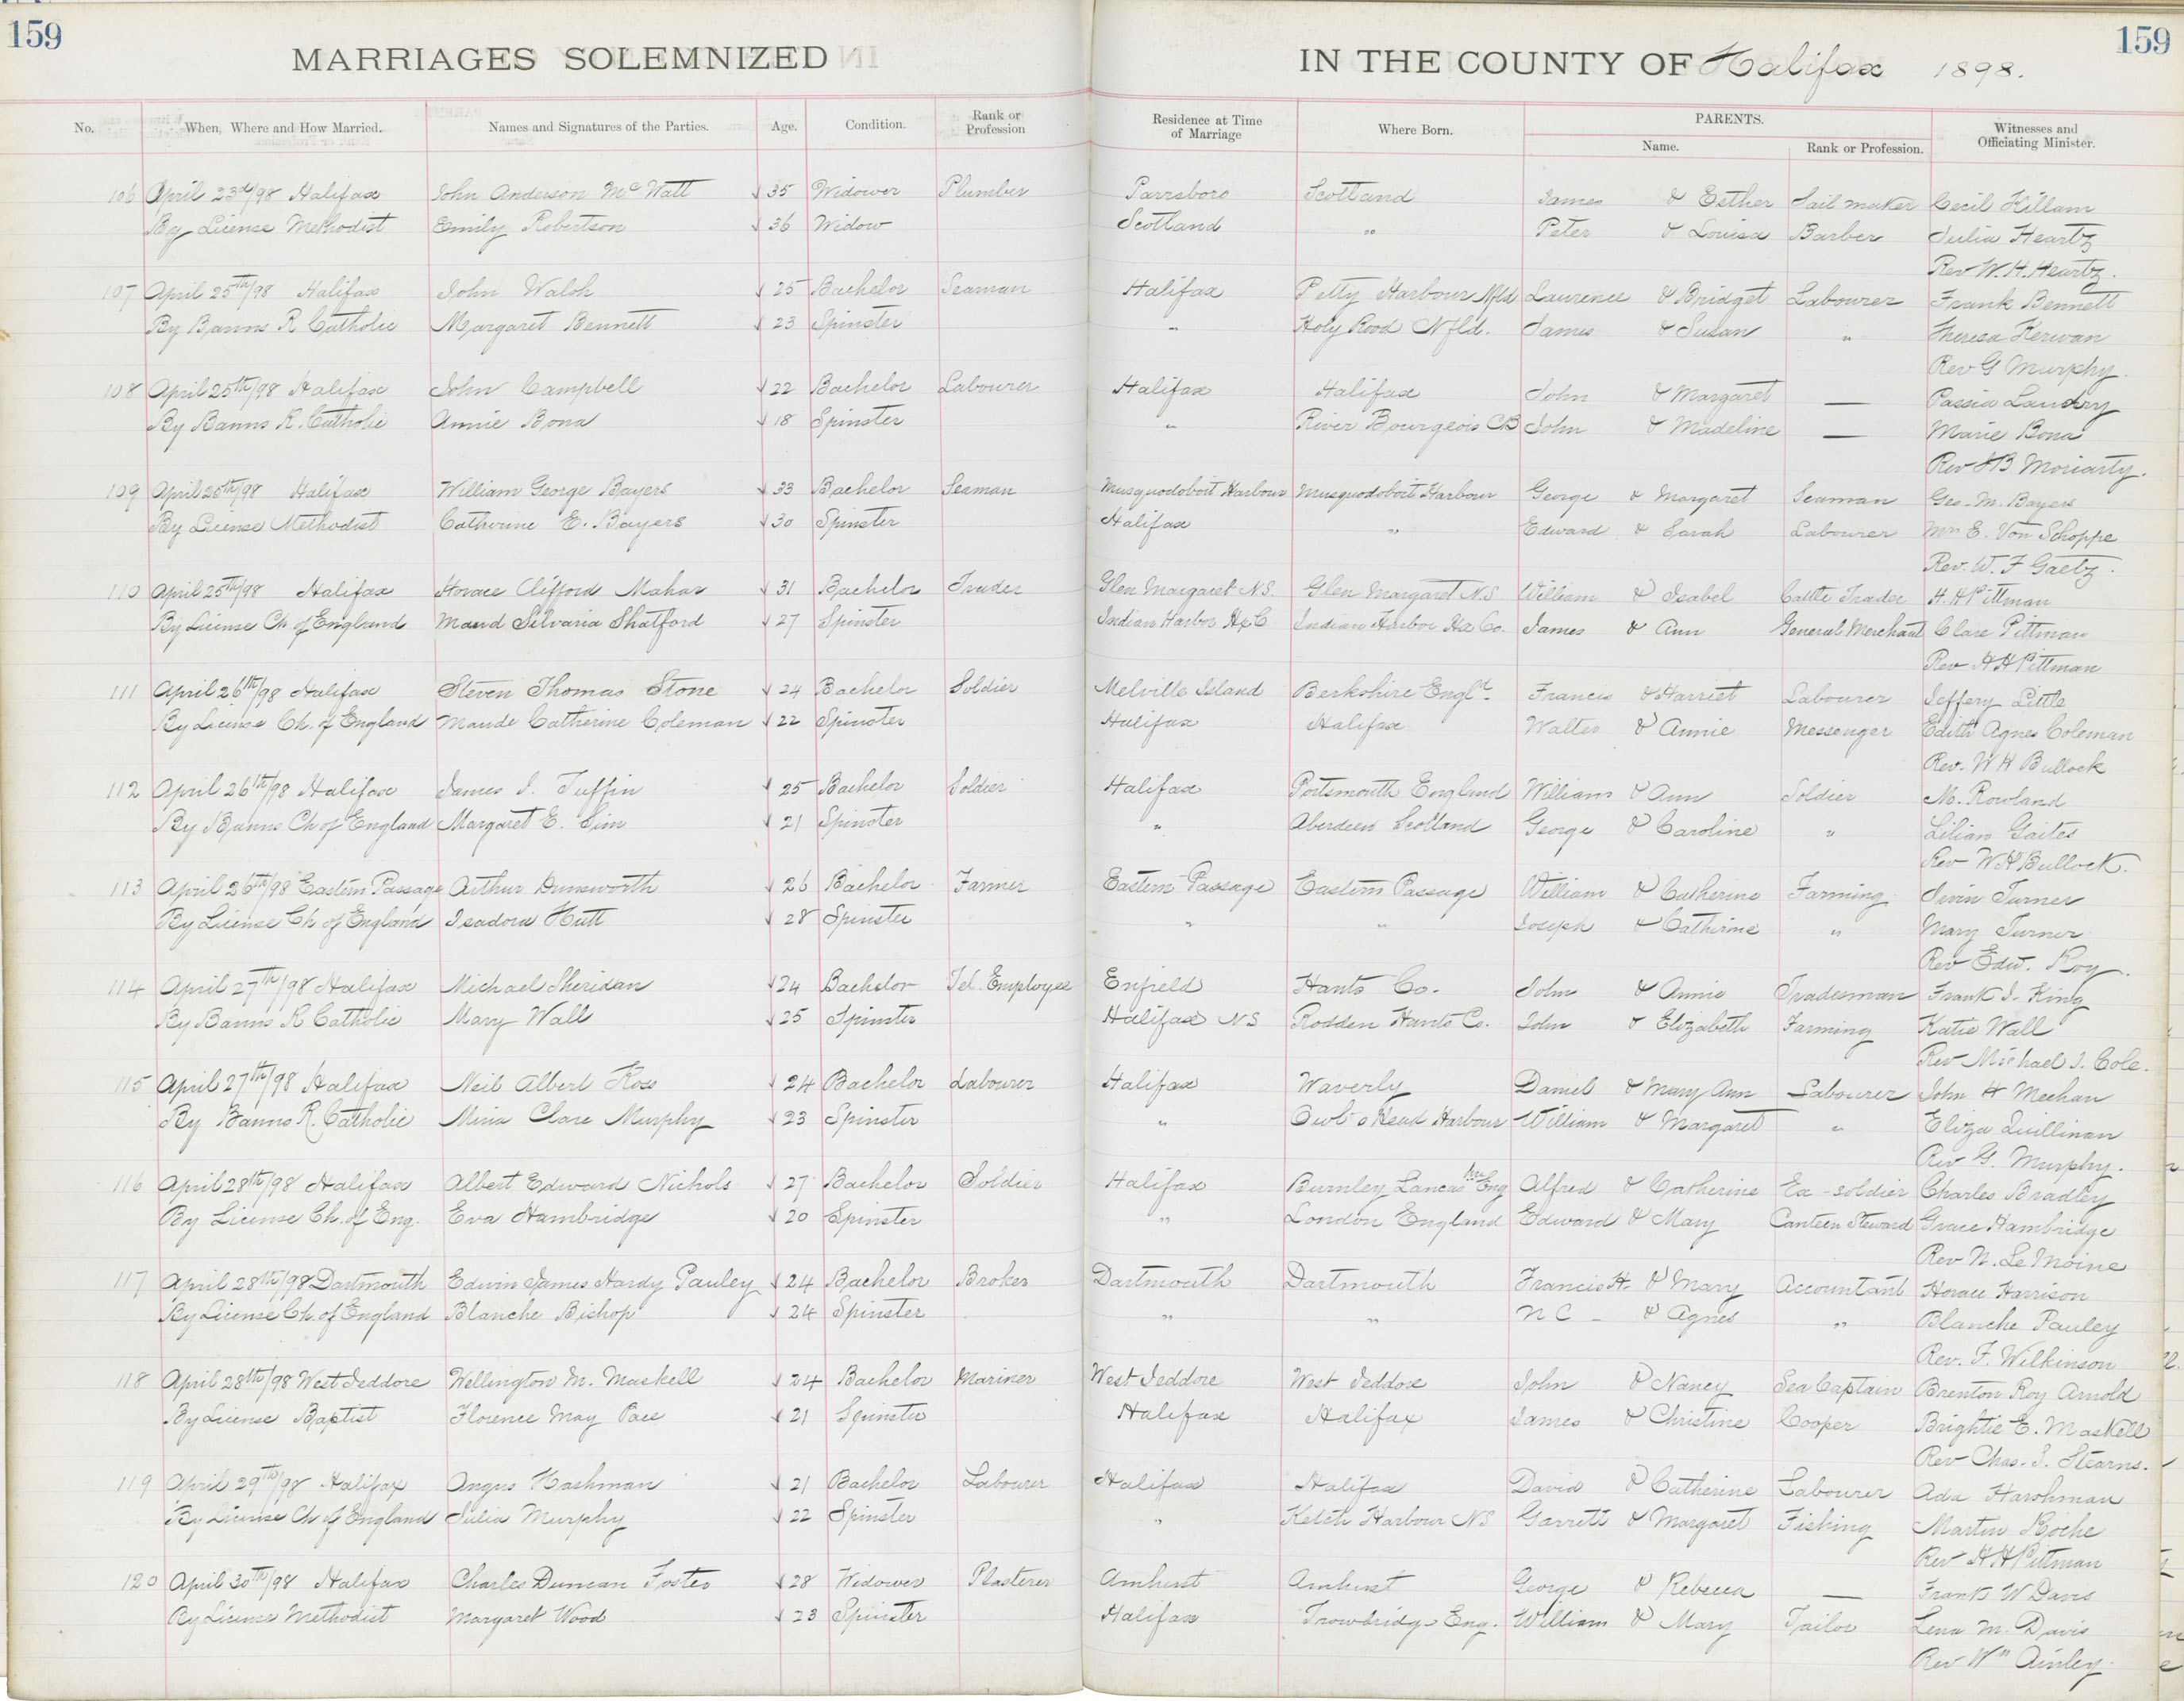 159
159
MARRIAGES SOLEMNIZED
IN THE COUNTY OF Halifax 1898.
No. When, Where and How Married. Names and Signatures of the Parties. Age. Condition. Rank or Profession Residence at Time of Marriage Where Born. PARENTS. Name. Rank or Profession. Witnesses and Officiating Minister.
106 April 23d/98 Halifax John Anderson McWatt 35 Widower Plumber Parrsboro Scotland James & Esther Sail maker Cecil Killam
By License Methodist Emily Robertson 36 Widow Scotland " Peter & Louisa Barber Julia Heartz
Rev W. H. Heartz.
107 April 25th/98 Halifax John Walsh 25 Bachelor Seaman Halifax Petty Harbour Nfld Laurence & Bridget Labourer Frank Bennett
By Banns R Catholic Margaret Bennett 23 Spinster " Holy Rood Nfld. James & Susan " Theresa Kerwan
Rev G Murphy
108 April 25th/98 Halifax John Campbell 22 Bachelor Labourer Halifax Halifax John & Margaret — Passia Landry
By Banns R. Catholic Annie Bona 18 Spinster " River Bourgeois CB John & Madeline — Marie Bona
Rev J B Moriarty.
109 April 25th/98 Halifax William George Bayers 33 Bachelor Seaman Musquodoboit Harbour Musquodoboit Harbour George & Margaret Seaman Geo. M. Bayers
By License Methodist Catherine E. Bayers 30 Spinster Halifax " Edward & Sarah Labourer Mrs E. Von Schoppe
Rev. W. F Gaetz.
110 April 25th/98 Halifax Horace Clifford Mahar 31 Bachelor Trader Glen Margaret N.S. Glen Margaret N.S. William & Isabel Cattle Trader H. H Pittman
By License Ch of England Maud Silvaria Shatford 27 Spinster Indian Harbor Hx C Indian Harbor Hx Co. James & Ann General Merchant Clare Pittman
Rev H H Pittman
111 April 26th/98 Halifax Steven Thomas Stone 24 Bachelor Soldier Melville Island Berkshire Engld. Francis & Harriet Labourer Jeffery Little
By License Ch. of England Maude Catherine Coleman 22 Spinster Halifax Halifax Walter & Annie Messenger Edith Agnes Coleman
Rev. W H Bullock
112 April 26th/98 Halifax James J. Tuffin 25 Bachelor Soldier Halifax Portsmouth England William & Ann Soldier M. Rowland
By Banns Ch of England Margaret E. Sim 21 Spinster " Aberdeen Scotland George & Caroline " Lilian Gaites
Rev W. H Bullock.
113 April 26th/98 Eastern Passage Arthur Dunsworth 26 Bachelor Farmer Eastern Passage Eastern Passage William & Catherine Farming Irvin Turner
By License Ch of England Isadora Hutt 28 Spinster " " Joseph & Catherine " Mary Turner
Rev Edw. Roy.
114 April 27th/98 Halifax Michael Sheridan 24 Bachelor Tel. Employee Enfield Hants Co. John & Annie Tradesman Frank J. King
By Banns R Catholic Mary Wall 25 Spinster Halifax NS Rodden Hants Co. John & Elizabeth Farming Katie Wall
Rev Michael J. Cole.
115 April 27th/98 Halifax Neil Albert Ross 24 Bachelor Labourer Halifax Waverly Daniel & Mary Ann Labourer John H Meehan
By Banns R. Catholic Mina Clare Murphy 23 Spinster " Owl's Head Harbour William & Margaret " Eliza Quillinan
Rev G. Murphy.
116 April 28th/98 Halifax Albert Edward Nichols 27 Bachelor Soldier Halifax Burnley Lancashire Eng Alfred & Catherine Ex-soldier Charles Bradley
By License Ch. of Eng. Eva Hambridge 20 Spinster " London England Edward & Mary Canteen Steward Grace Hambridge
Rev N. Le Moine
117 April 28th/98 Dartmouth Edwin James Hardy Pauley 24 Bachelor Broker Dartmouth Dartmouth Francis H. & Mary Accountant Horace Harrison
By License Ch. of England Blanche Bishop 24 Spinster " " N C - & Agnes " Blanche Pauley
Rev. F. Wilkinson
118 April 28th/98 West Jeddore Wellington M. Maskell 24 Bachelor Mariner West Jeddore West Jeddore John & Nancy Sea Captain Brenton Roy Arnold
By License Baptist Florence May Pace 21 Spinster Halifax Halifax James & Christine Cooper Brightie E. Maskell
Rev Chas. I. Stearns.
119 April 29th/98 Halifax Angus Hashman 21 Bachelor Labourer Halifax Halifax David & Catherine Labourer Ada Harshman
By License Ch of England Julia Murphy 22 Spinster " Ketch Harbour NS Garrett & Margaret Fishing Martin Roche
Rev H H Pittman
120 April 30th/98 Halifax Charles Duncan Foster 28 Widower Plasterer Amherst Amherst George & Rebecca — Frank W Davis
By License Methodist Margaret Wood 23 Spinster Halifax Trowbridge Eng. William & Mary Tailor Lena M. Davis
Rev Wm Ainley